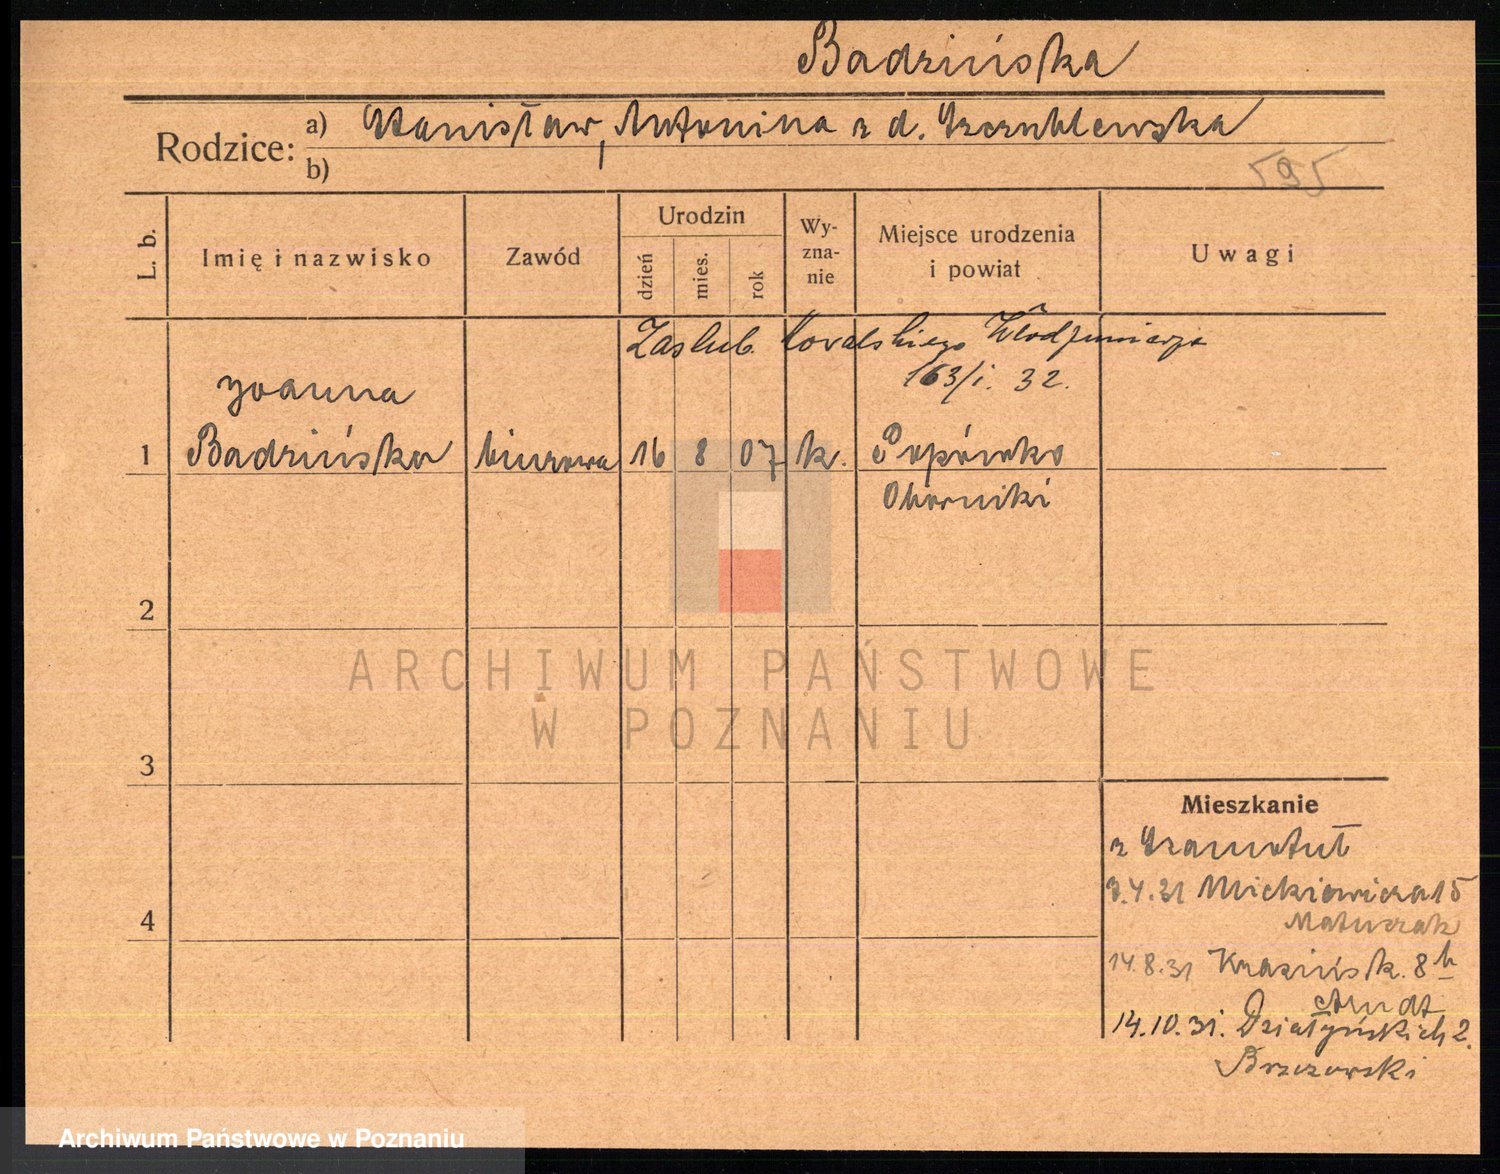 Badzińska
Rodzice:
a) Stanisław, Antonina z d. Szczublewska
b)
595
L. b.
Imię i nazwisko
Zawód
Urodzin
dzień
mies.
rok
Wy-
zna-
nie
Miejsce urodzenia
i powiat
Uwagi
Zaślub. Kowalskiego Włodzimierza
163/I. 32.
Joanna
1 Badzińska biurowa 16 8 07 k. Popówko
Oborniki
2
3
4
Mieszkanie
z Szamotuł
3.4.31 Mickiewicza 15
Matuszak
14.8.31 Krasińsk. 8b
Arndt
14.10.31. Działyńskich 2.
Brzozowski
ARCHIWUM PAŃSTWOWE
W POZNANIU
Archiwum Państwowe w Poznaniu